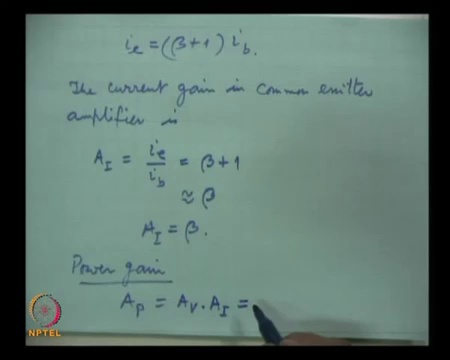 i_e = (β+1) i_b.
The current gain in common emitter
amplifier is
A_I = i_e/i_b = β+1
≈ β
A_I = β.
Power gain
A_p = A_v . A_I =
NPTEL